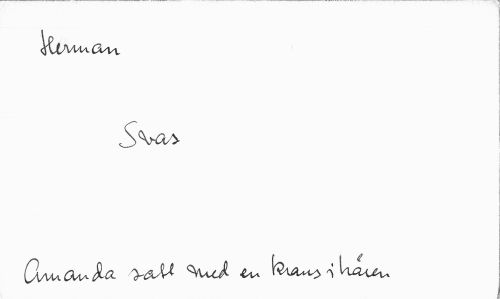 Herman
Svas
Amanda satt med en krans i håren